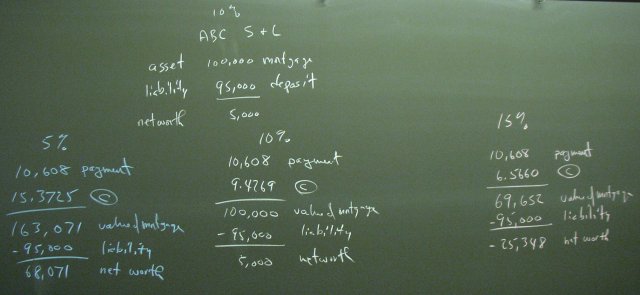 10%
ABC S + L
asset 100,000 mortgage
liability 95,000 deposit
net worth 5,000
5%
10,608 payment
15.3725 ©
163,071 value of mortgage
-95,000 liability
68,071 net worth
10%
10,608 payment
9.4269 ©
100,000 value of mortgage
-95,000 liability
5,000 net worth
15%
10,608 payment
6.5660 ©
69,652 value of mortgage
-95,000 liability
-25,348 net worth